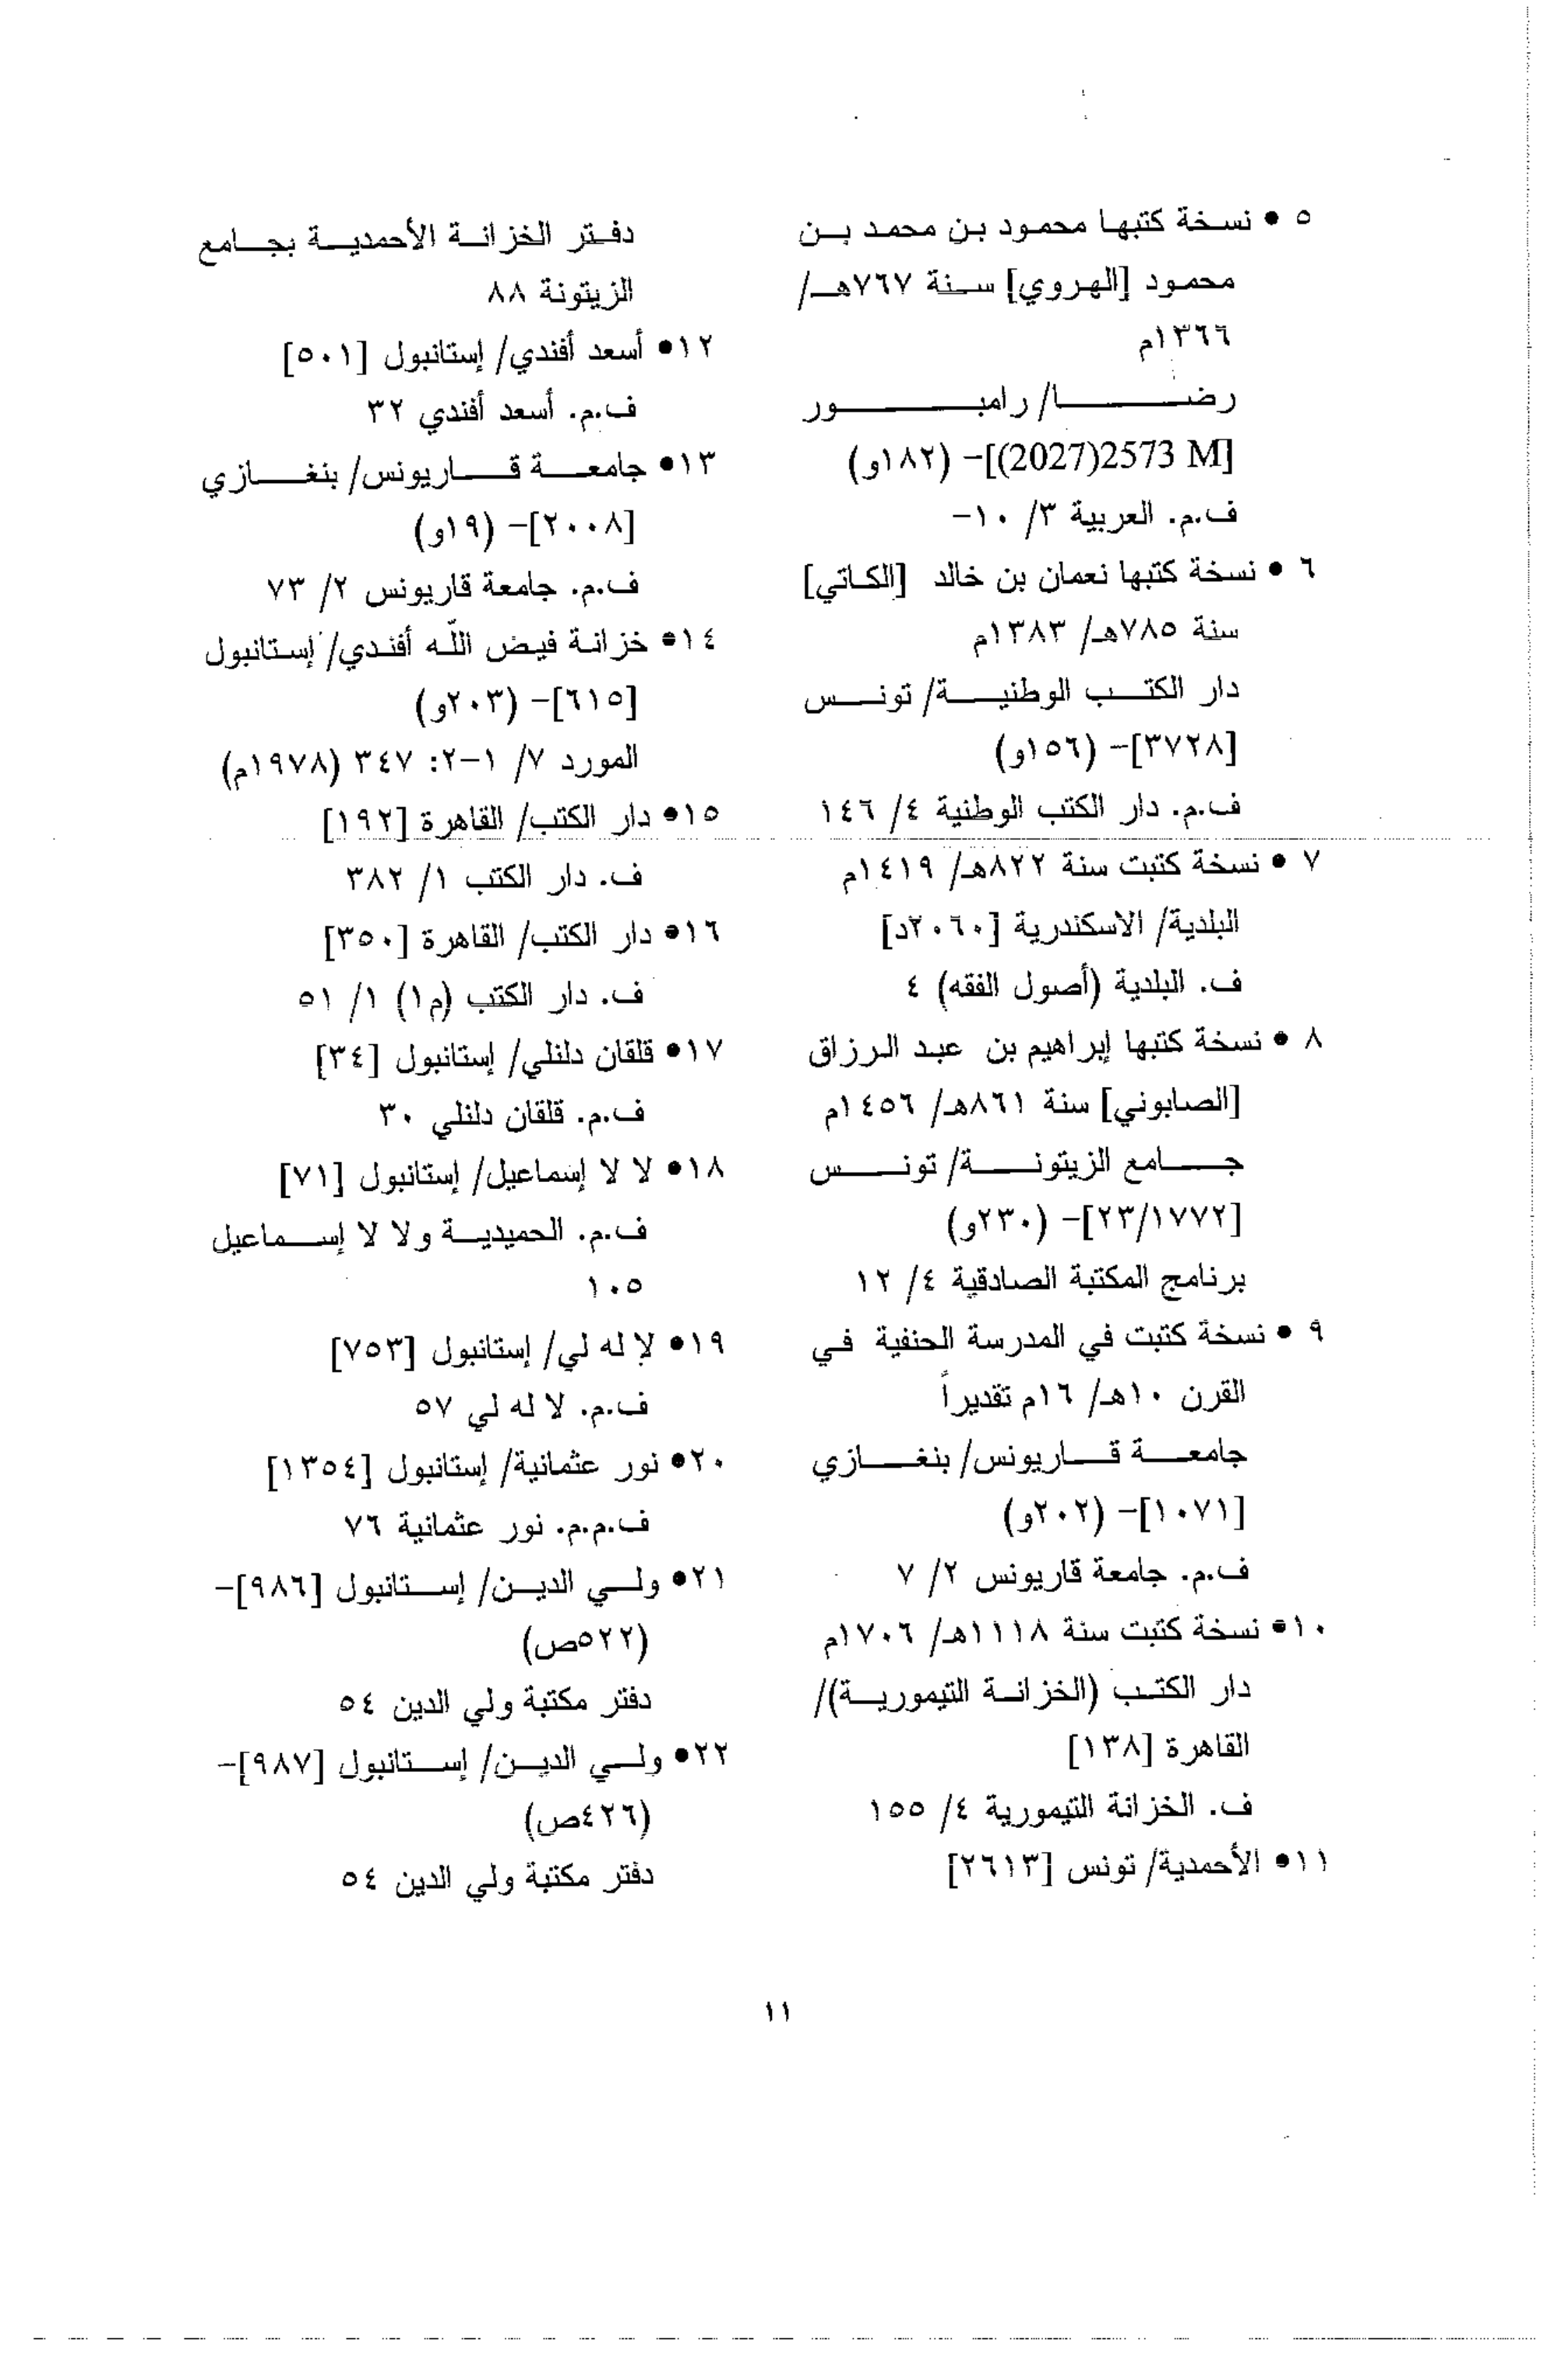 ٥ • نسخة كتبها محمود بن محمد بن
محمود [الهروي] سنة ٧٦٧هـ/
١٣٦٦م
رضا/ رامبور
[2573 M(2027)]- (١٨٢و)
ف.م. العربية ٣/ ١٠-
٦ • نسخة كتبها نعمان بن خالد [الكاتي]
سنة ٧٨٥هـ/ ١٣٨٣م
دار الكتب الوطنية/ تونس
[٣٧٢٨]- (١٥٦و)
ف.م. دار الكتب الوطنية ٤/ ١٤٦
٧ • نسخة كتبت سنة ٨٢٢هـ/ ١٤١٩م
البلدية/ الاسكندرية [٢٠٦٠د]
ف. البلدية (أصول الفقه) ٤
٨ • نسخة كتبها إبراهيم بن عبد الرزاق
[الصابوني] سنة ٨٦١هـ/ ١٤٥٦م
جامع الزيتونة/ تونس
[٢٣/١٧٧٢]- (٢٣٠و)
برنامج المكتبة الصادقية ٤/ ١٢
٩ • نسخة كتبت في المدرسة الحنفية في
القرن ١٠هـ/ ١٦م تقديراً
جامعة قاريونس/ بنغازي
[١٠٧١]- (٢٠٢و)
ف.م. جامعة قاريونس ٢/ ٧
١٠• نسخة كتبت سنة ١١١٨هـ/ ١٧٠٦م
دار الكتب (الخزانة التيمورية)/
القاهرة [١٣٨]
ف. الخزانة التيمورية ٤/ ١٥٥
١١• الأحمدية/ تونس [٢٦١٣]
دفتر الخزانة الأحمدية بجامع
الزيتونة ٨٨
١٢• أسعد أفندي/ إستانبول [٥٠١]
ف.م. أسعد أفندي ٣٢
١٣• جامعة قاريونس/ بنغازي
[٢٠٠٨]- (١٩و)
ف.م. جامعة قاريونس ٢/ ٧٣
١٤• خزانة فيض الله أفندي/ إستانبول
[٦١٥]- (٢٠٣و)
المورد ٧/ ١-٢: ٣٤٧ (١٩٧٨م)
١٥• دار الكتب/ القاهرة [١٩٢]
ف. دار الكتب ١/ ٣٨٢
١٦• دار الكتب/ القاهرة [٣٥٠]
ف. دار الكتب (م١) ١/ ٥١
١٧• قلقان دلنلي/ إستانبول [٣٤]
ف.م. قلقان دلنلي ٣٠
١٨• لا لا إسماعيل/ إستانبول [٧١]
ف.م. الحميدية ولا لا إسماعيل
١٠٥
١٩• لا له لي/ إستانبول [٧٥٣]
ف.م. لا له لي ٥٧
٢٠• نور عثمانية/ إستانبول [١٣٥٤]
ف.م.م. نور عثمانية ٧٦
٢١• ولي الدين/ إستانبول [٩٨٦]-
(٥٢٢ص)
دفتر مكتبة ولي الدين ٥٤
٢٢• ولي الدين/ إستانبول [٩٨٧]-
(٤٢٦ص)
دفتر مكتبة ولي الدين ٥٤
١١